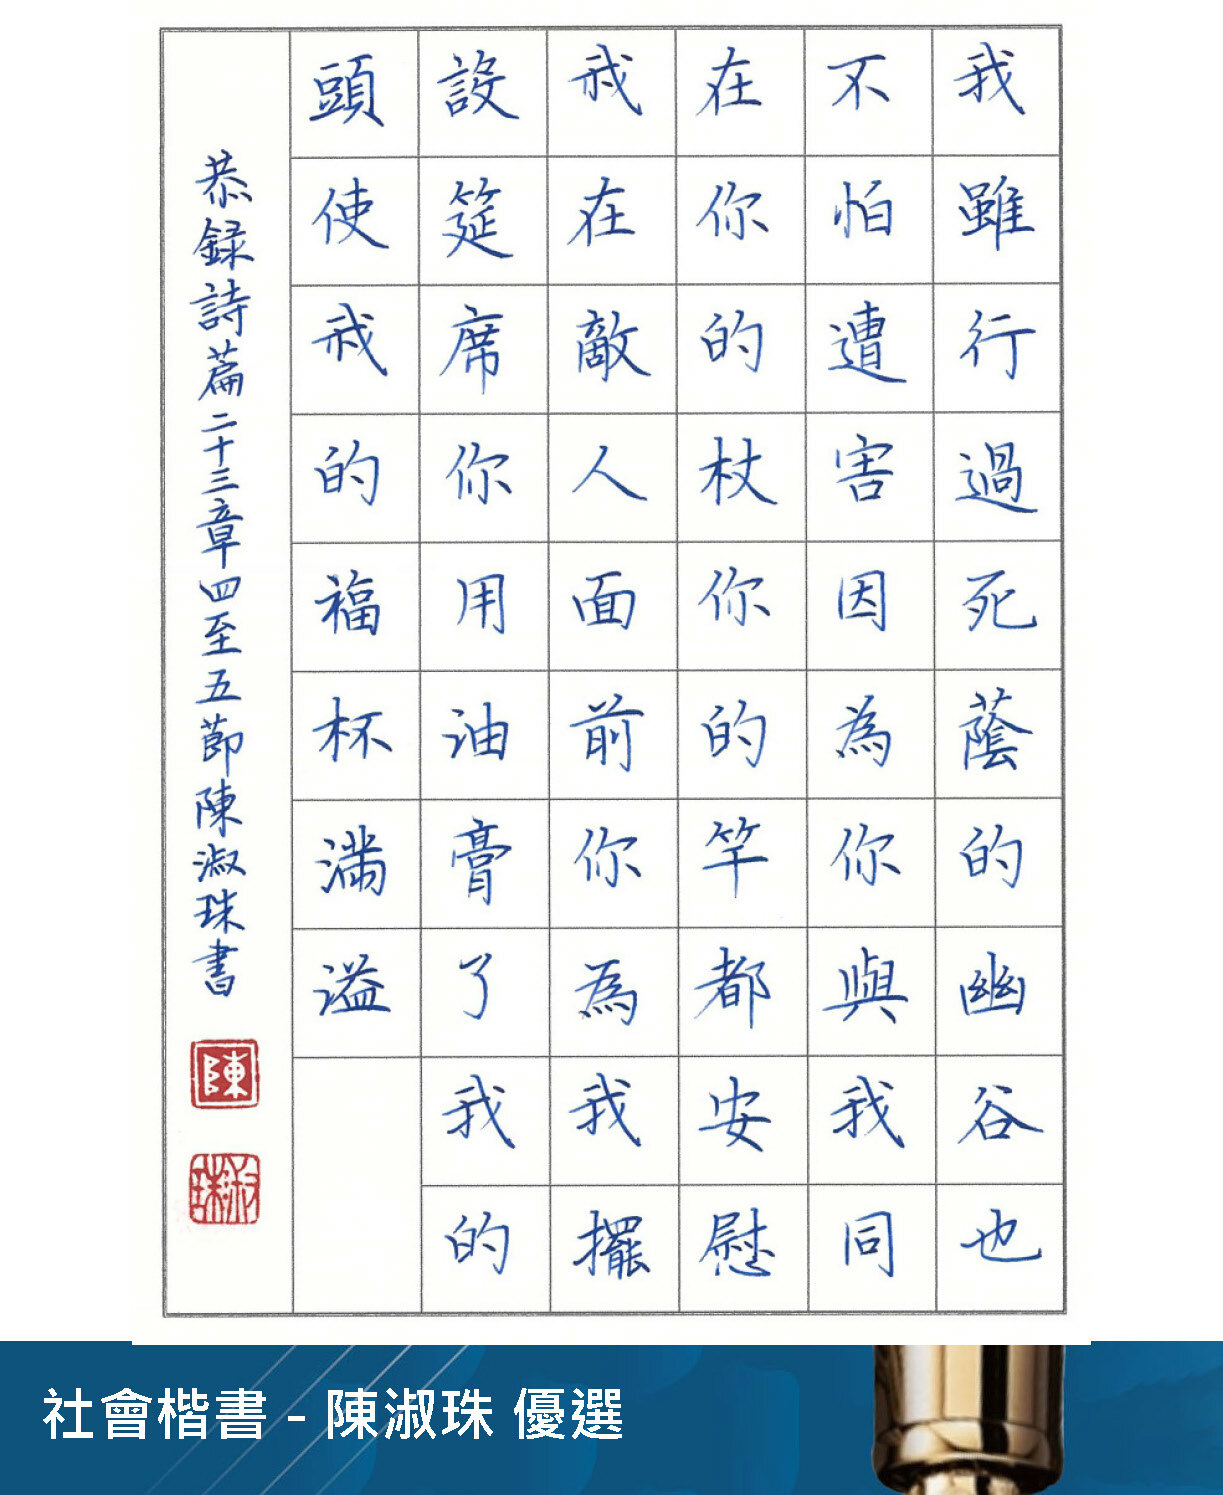 我雖行過死蔭的幽谷也
不怕遭害因為你與我同
在你的杖你的竿都安慰
我在敵人面前你為我擺
設筵席你用油膏了我的
頭使我的福杯滿溢
恭録詩篇二十三章四至五節陳淑珠書
陳
淑珠
社會楷書 - 陳淑珠 優選